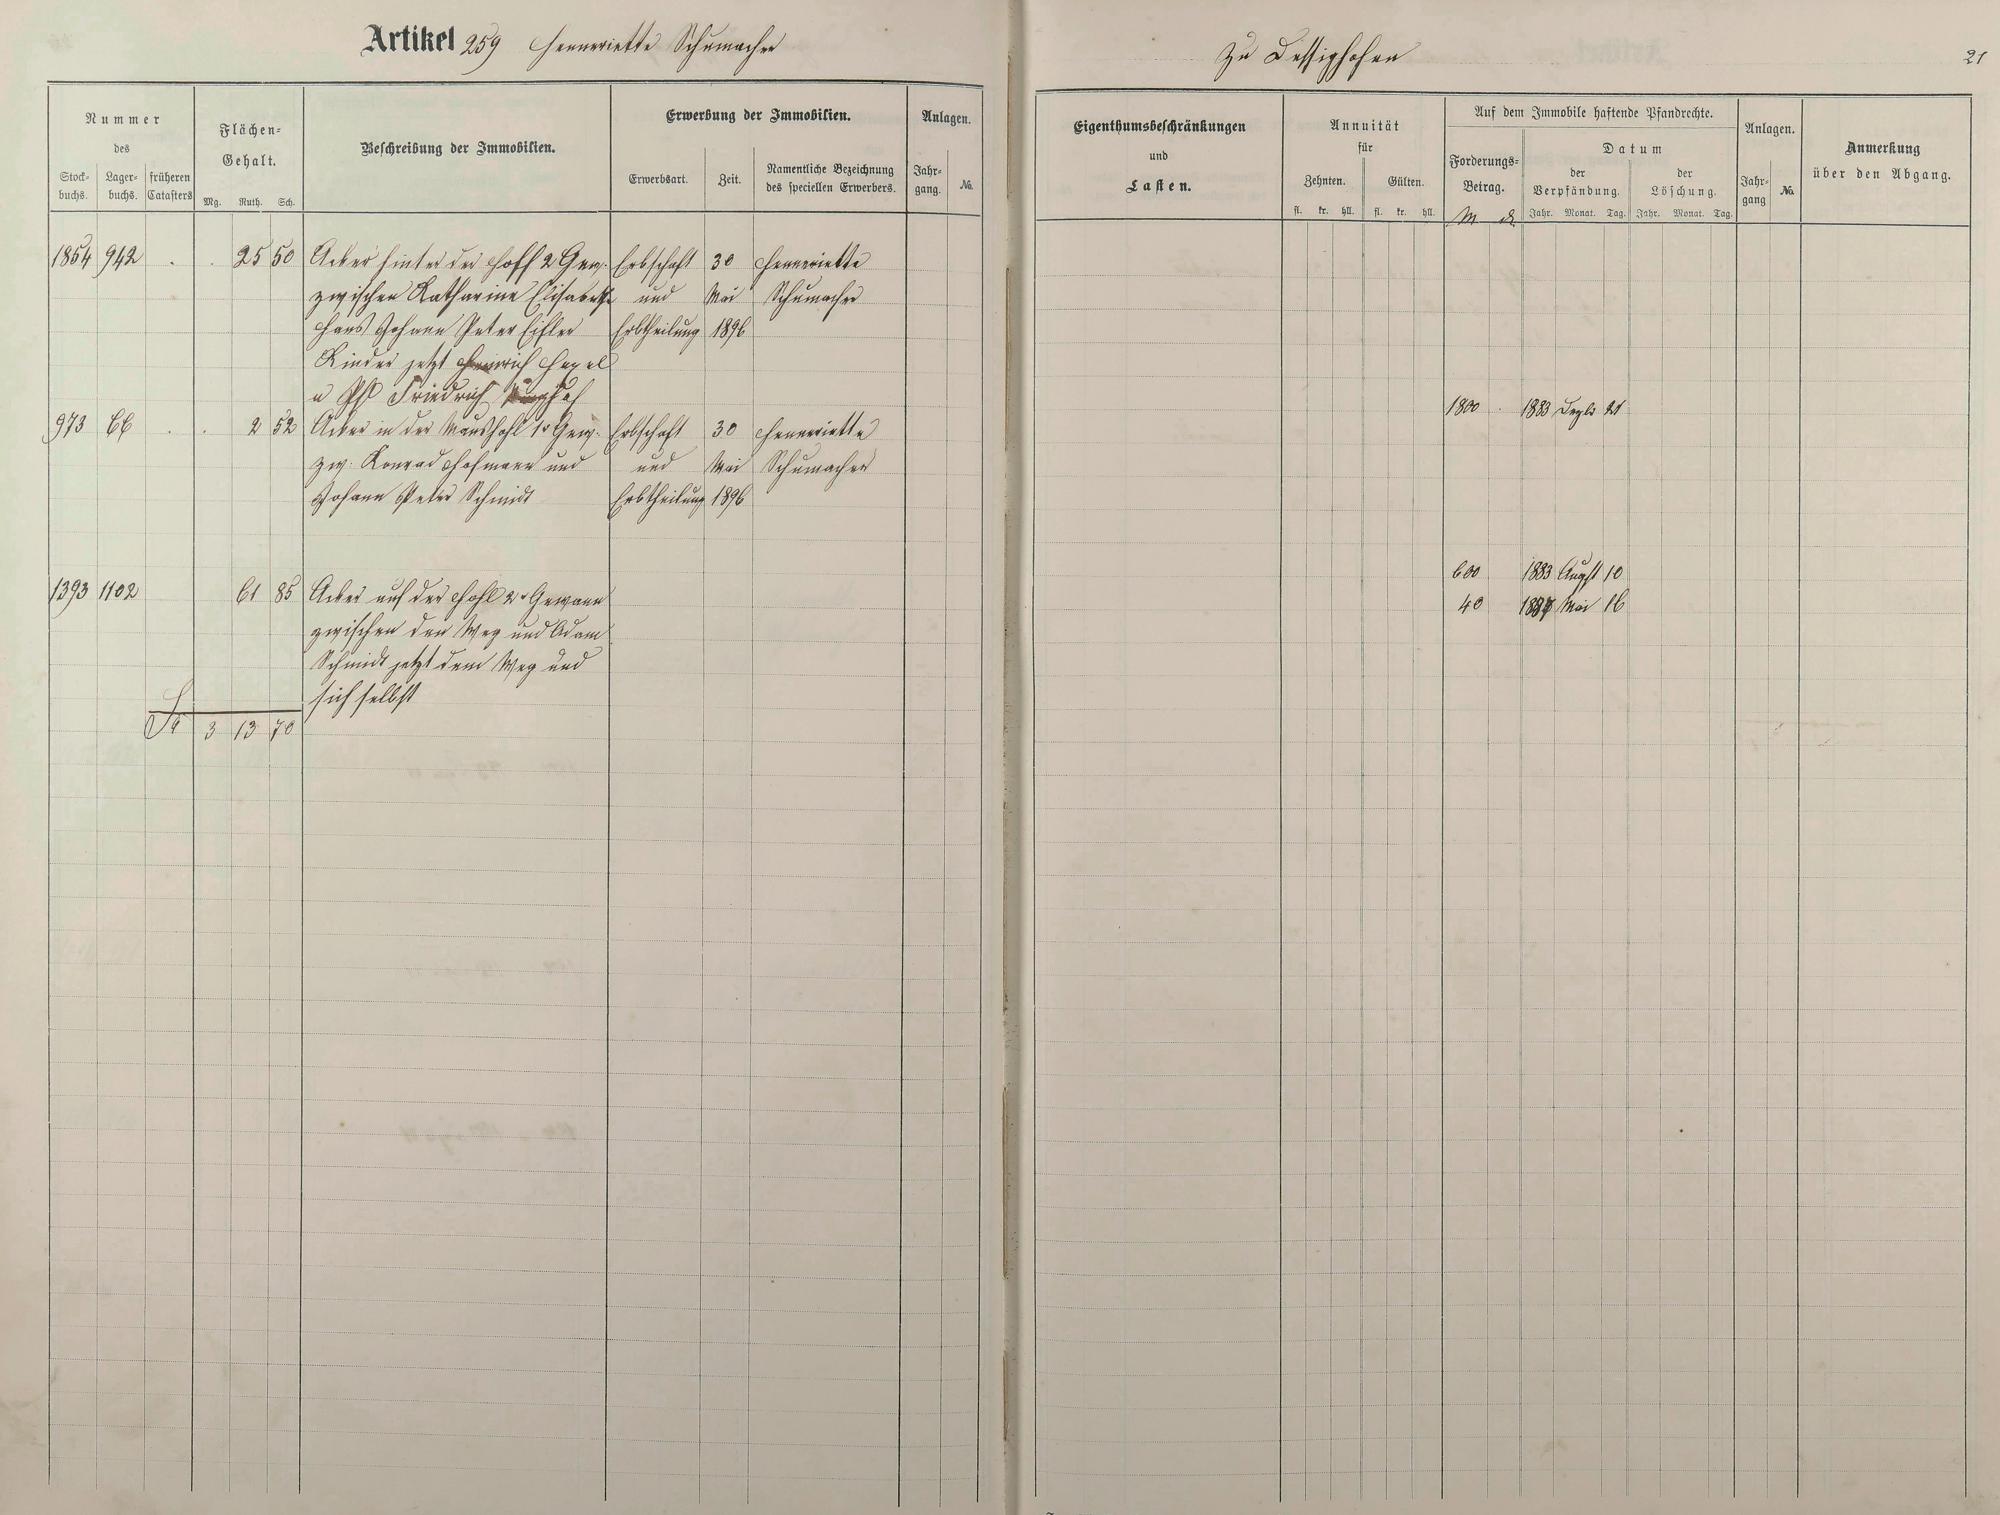 Artikel 259 Henneriette Schumacher
Nummer
des
Stock-buchs.
Lager-buchs.
früheren Catasters
Flächen-Gehalt.
Mg. Ruth. Sch.
Beschreibung der Immobilien.
Erwerbung der Immobilien.
Erwerbsart.
Zeit.
Namentliche Bezeichnung
des speciellen Erwerbers.
Anlagen.
Jahr-gang.
No.
1854 942 . . 25 50 Acker hinter der Hoff 2 Gew. Erbschaft 30 Henneriette
zwischen Katharine Elisabethe und Mai Schumacher
Hans Johann Peter Eifler Erbtheilung 1896
Kinder jetzt Heinrich
u Phl Friedrich
973 66 . . 2 52 Acker in der 1r Gew. Erbschaft 30 Henneriette
zw. Konrad Hofmann und und Mai Schumacher
Johann Peter Schmidt Erbtheilung 1896
1393 1102 61 85 Acker auf der Hohl 2r Gewann
zwischen den Weg und Adam
Schmidt jetzt dem Weg und
sich selbst
Sa 3 13 70
zu Dessighofen
21
Eigenthumsbeschränkungen
und
Lasten.
Annuität
für
Zehnten.
Gülten.
fl. kr. hll. fl. kr. hll.
Auf dem Immobile haftende Pfandrechte.
Forderungs-Betrag.
Datum
der
Verpfändung.
der
Löschung.
Jahr. Monat. Tag. Jahr. Monat. Tag.
Anlagen.
Jahr-gang
No.
Anmerkung
über den Abgang.
1800 . 1883 21
600 1883 Augst 10
40 Mai 16